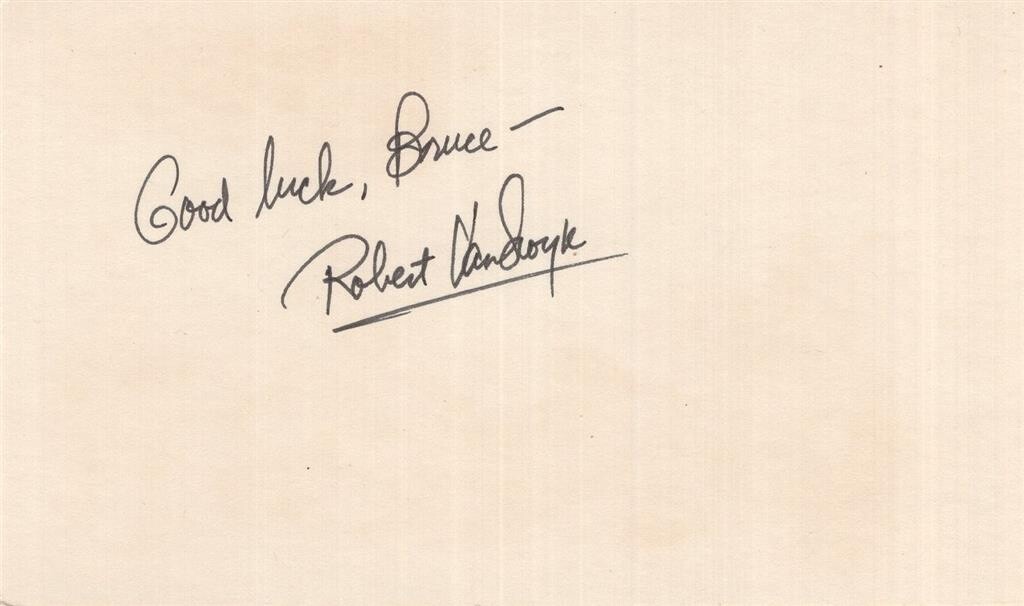 Good luck, Bruce —
Robert VanDwyk